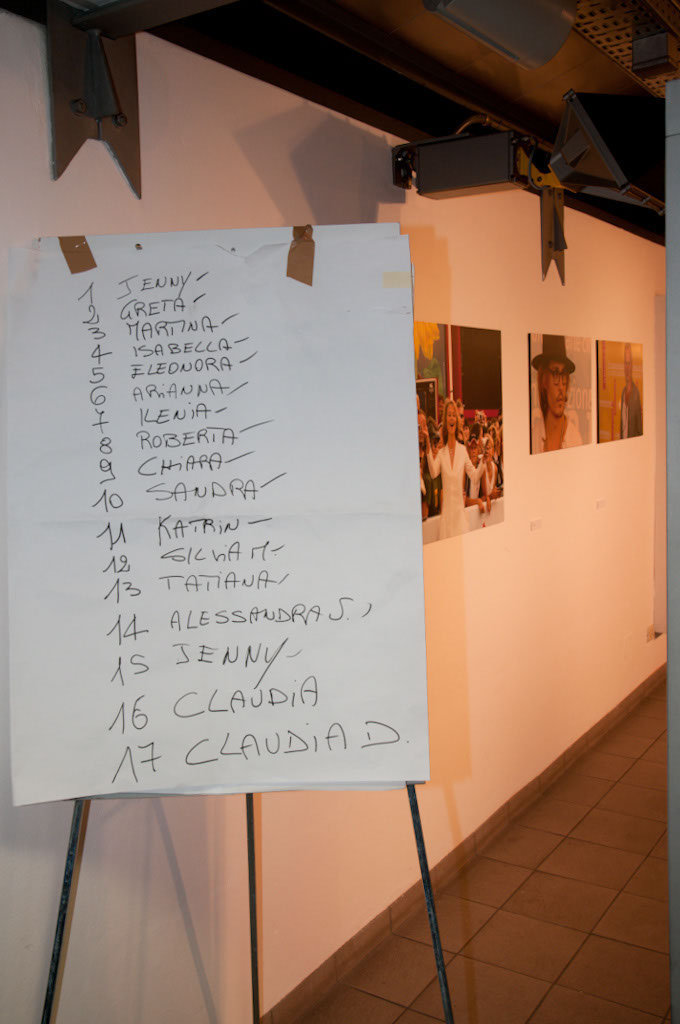 1 JENNY
2 GRETA
3 MARTINA
4 ISABELLA
5 ELEONORA
6 ARiANNA
7 ILENiA
8 ROBERTA
9 CHiARA
10 SANDRA
11 KATRIN
12 SILViA M.
13 TATIANA
14 ALESSANDRA S.
15 JENNY
16 CLAUDiA
17 CLAUDiA D.